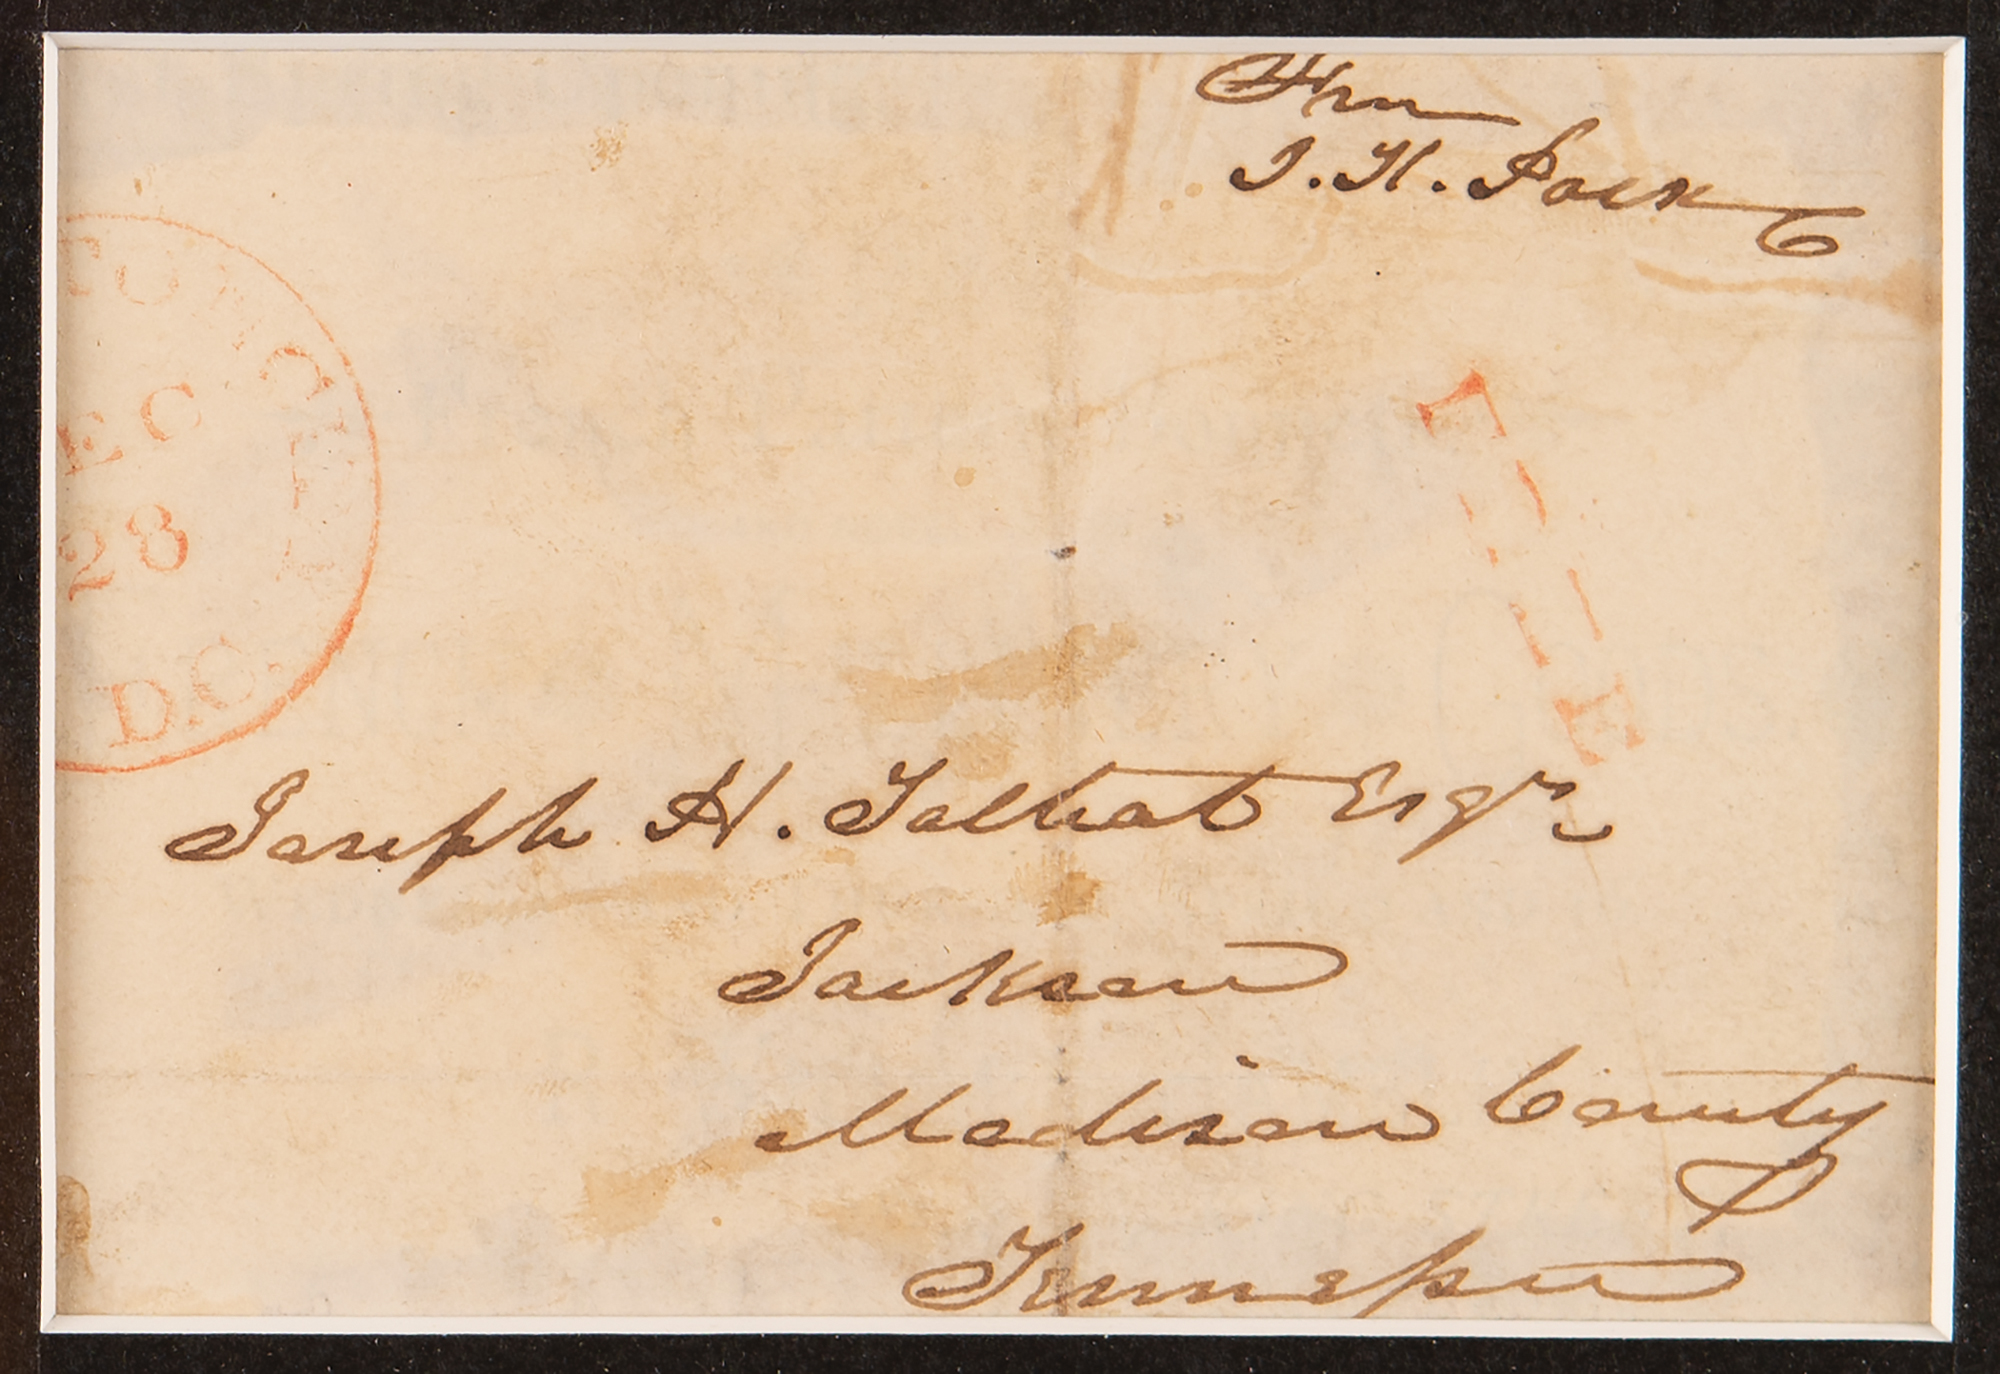 Free
J. K. Polk
TON CITY
EC
28
D.C.
F E E
Joseph H. Talbot Esqr.
Jackson
Madison County
Tennessee